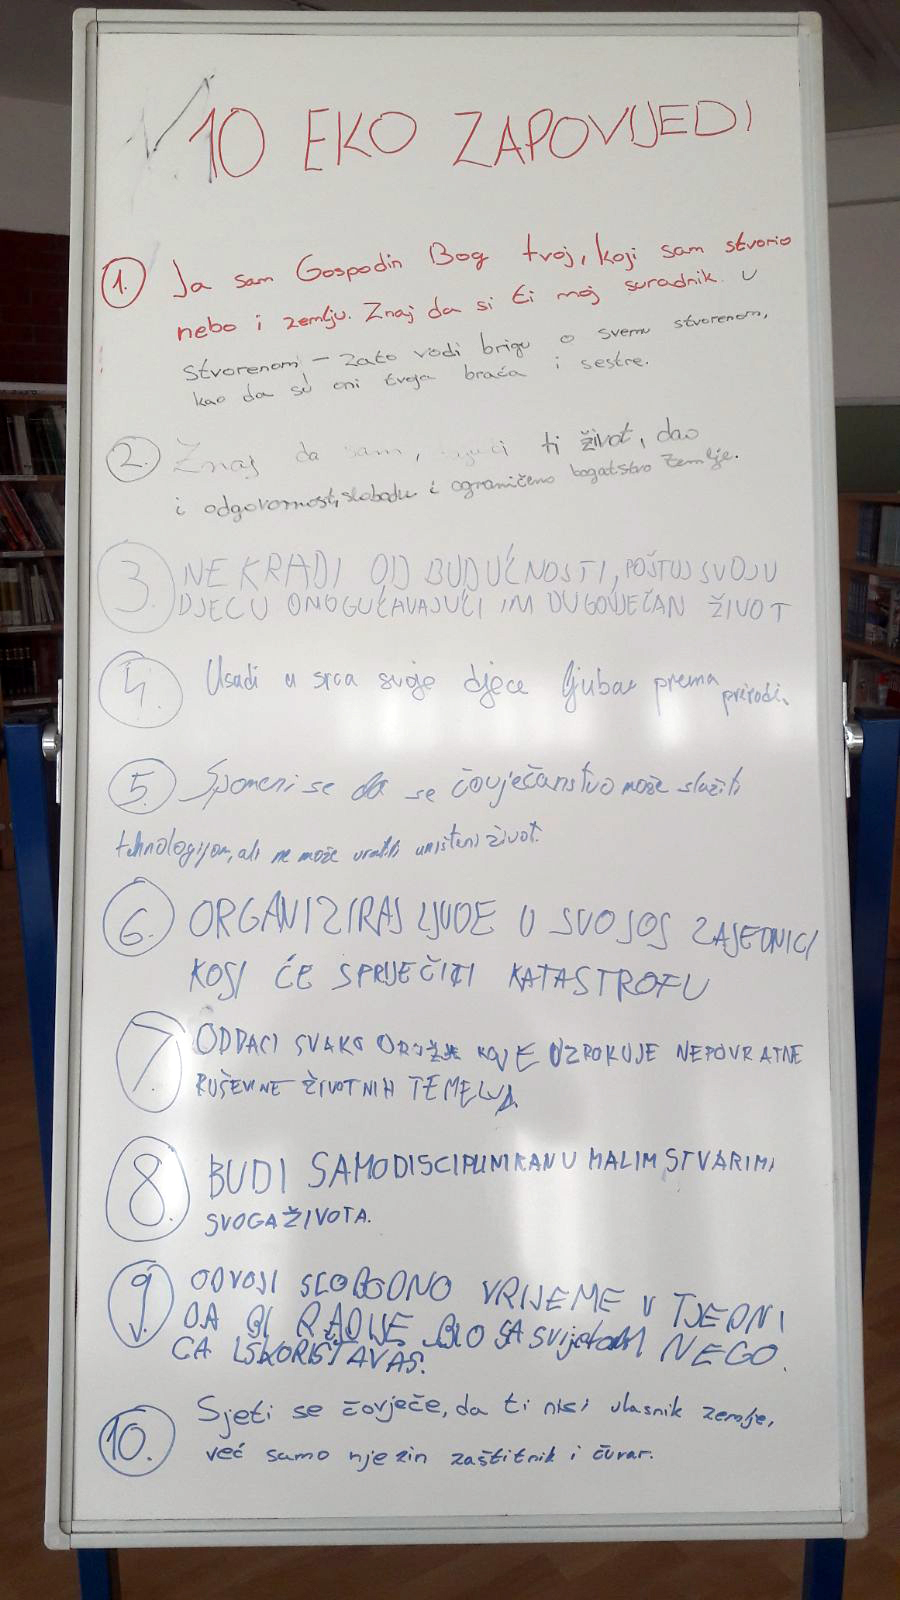 10 EKO ZAPOVIJEDI
1. Ja sam Gospodin Bog tvoj, koji sam stvorio
nebo i zemlju. Znaj da si ti moj suradnik u
stvorenom - zato vodi brigu o svemu stvorenom,
kao da su oni tvoja braća i sestre.
2. Znaj da sam, ti život, dao
i odgovornost, slobodu i ograničeno bogatstvo Zemlje.
3. NE KRADI OD BUDUĆNOSTI, POŠTUJ SVOJU
DJECU OMOGUĆAVAJUĆI IM DUGOVJEČAN ŽIVOT
4. Usadi u srca svoje djece ljubav prema prirodi.
5. Spomeni se da se čovječanstvo može služiti
tehnologijom, ali ne može vratiti uništeni život.
6. ORGANIZIRAJ LJUDE U SVOJOJ ZAJEDNICI
KOJI ĆE SPRIJEČITI KATASTROFU
7. ODBACI SVAKO ORUŽJE KOJE UZROKUJE NEPOVRATNE
RUŠEVINE ŽIVOTNIH TEMELJA.
8. BUDI SAMODISCIPLINIRAN U MALIM STVARIMA
SVOGA ŽIVOTA.
9. ODVOJI SLOBODNO VRIJEME U TJEDNU
DA BI RADIJE BIO SA svijetom NEGO
GA ISKORIŠTAVAŠ.
10. Sjeti se čovječe, da ti nisi vlasnik zemlje,
već samo njezin zaštitnik i čuvar.